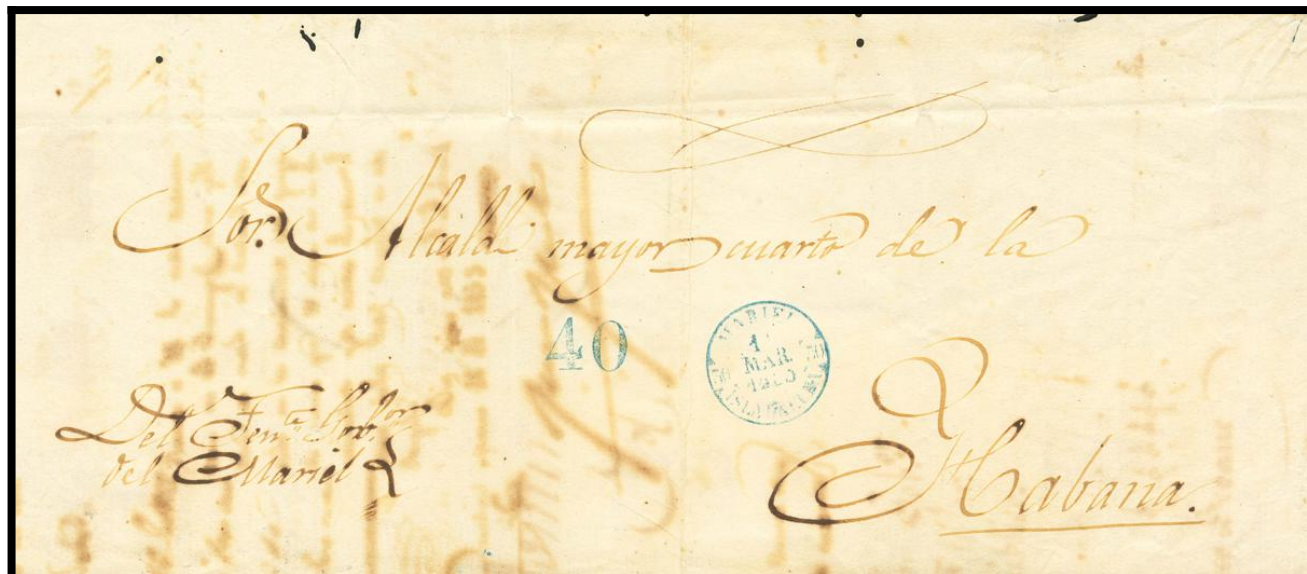 Sor. Alcalde mayor cuarto de la
40
MARIEL
1
MAR.
ISLA DE CUBA
Del Tente. Gobor.
del Mariel
Habana.